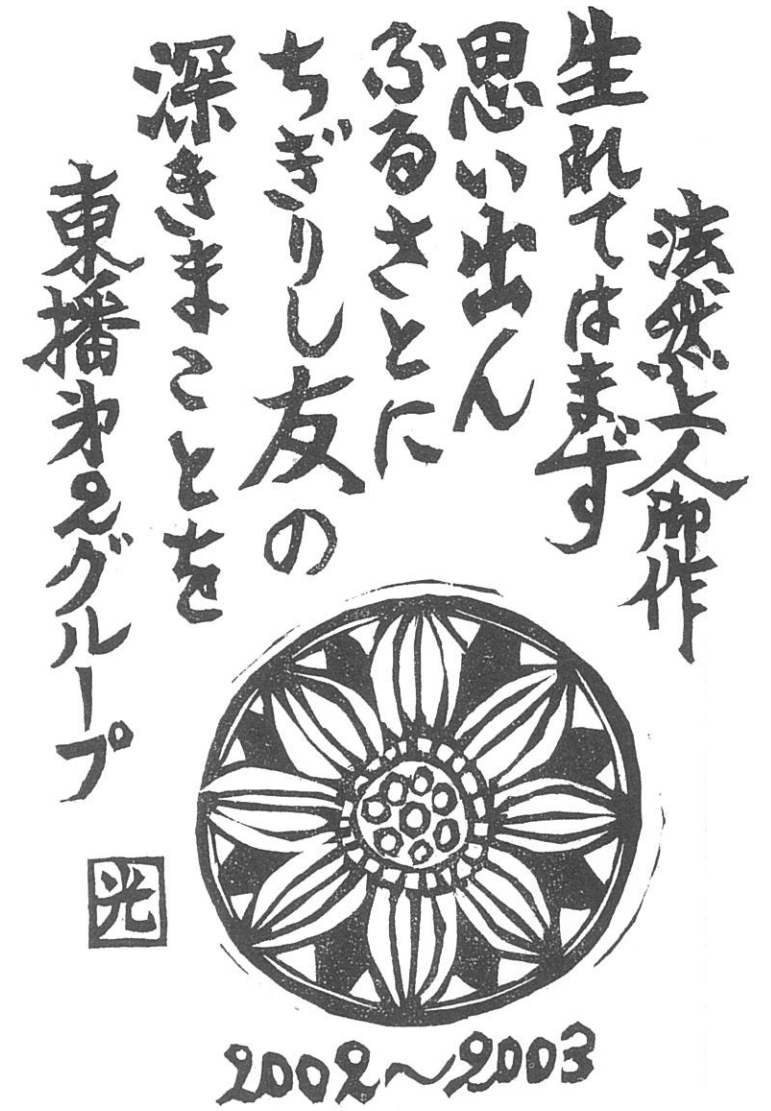 法然上人御作
生れてはまず
思い出ん
ふるさとに
ちぎりし友の
深きまことを
東播第2グループ
光
2002～2003